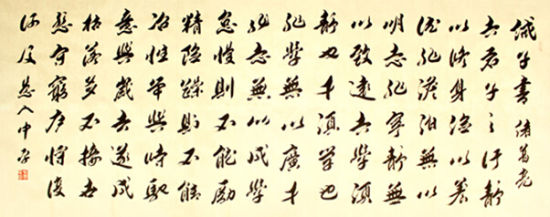 誡子書 諸葛亮
夫君子之行靜
以修身儉以養
德非澹泊無以
明志非寧靜無
以致遠夫學須
靜也才須學也
非學無以廣才
非志無以成學
怠慢則不能勵
精險躁則不能
冶性年與時馳
意與歲去遂成
枯落多不接世
悲守窮廬將復
何及